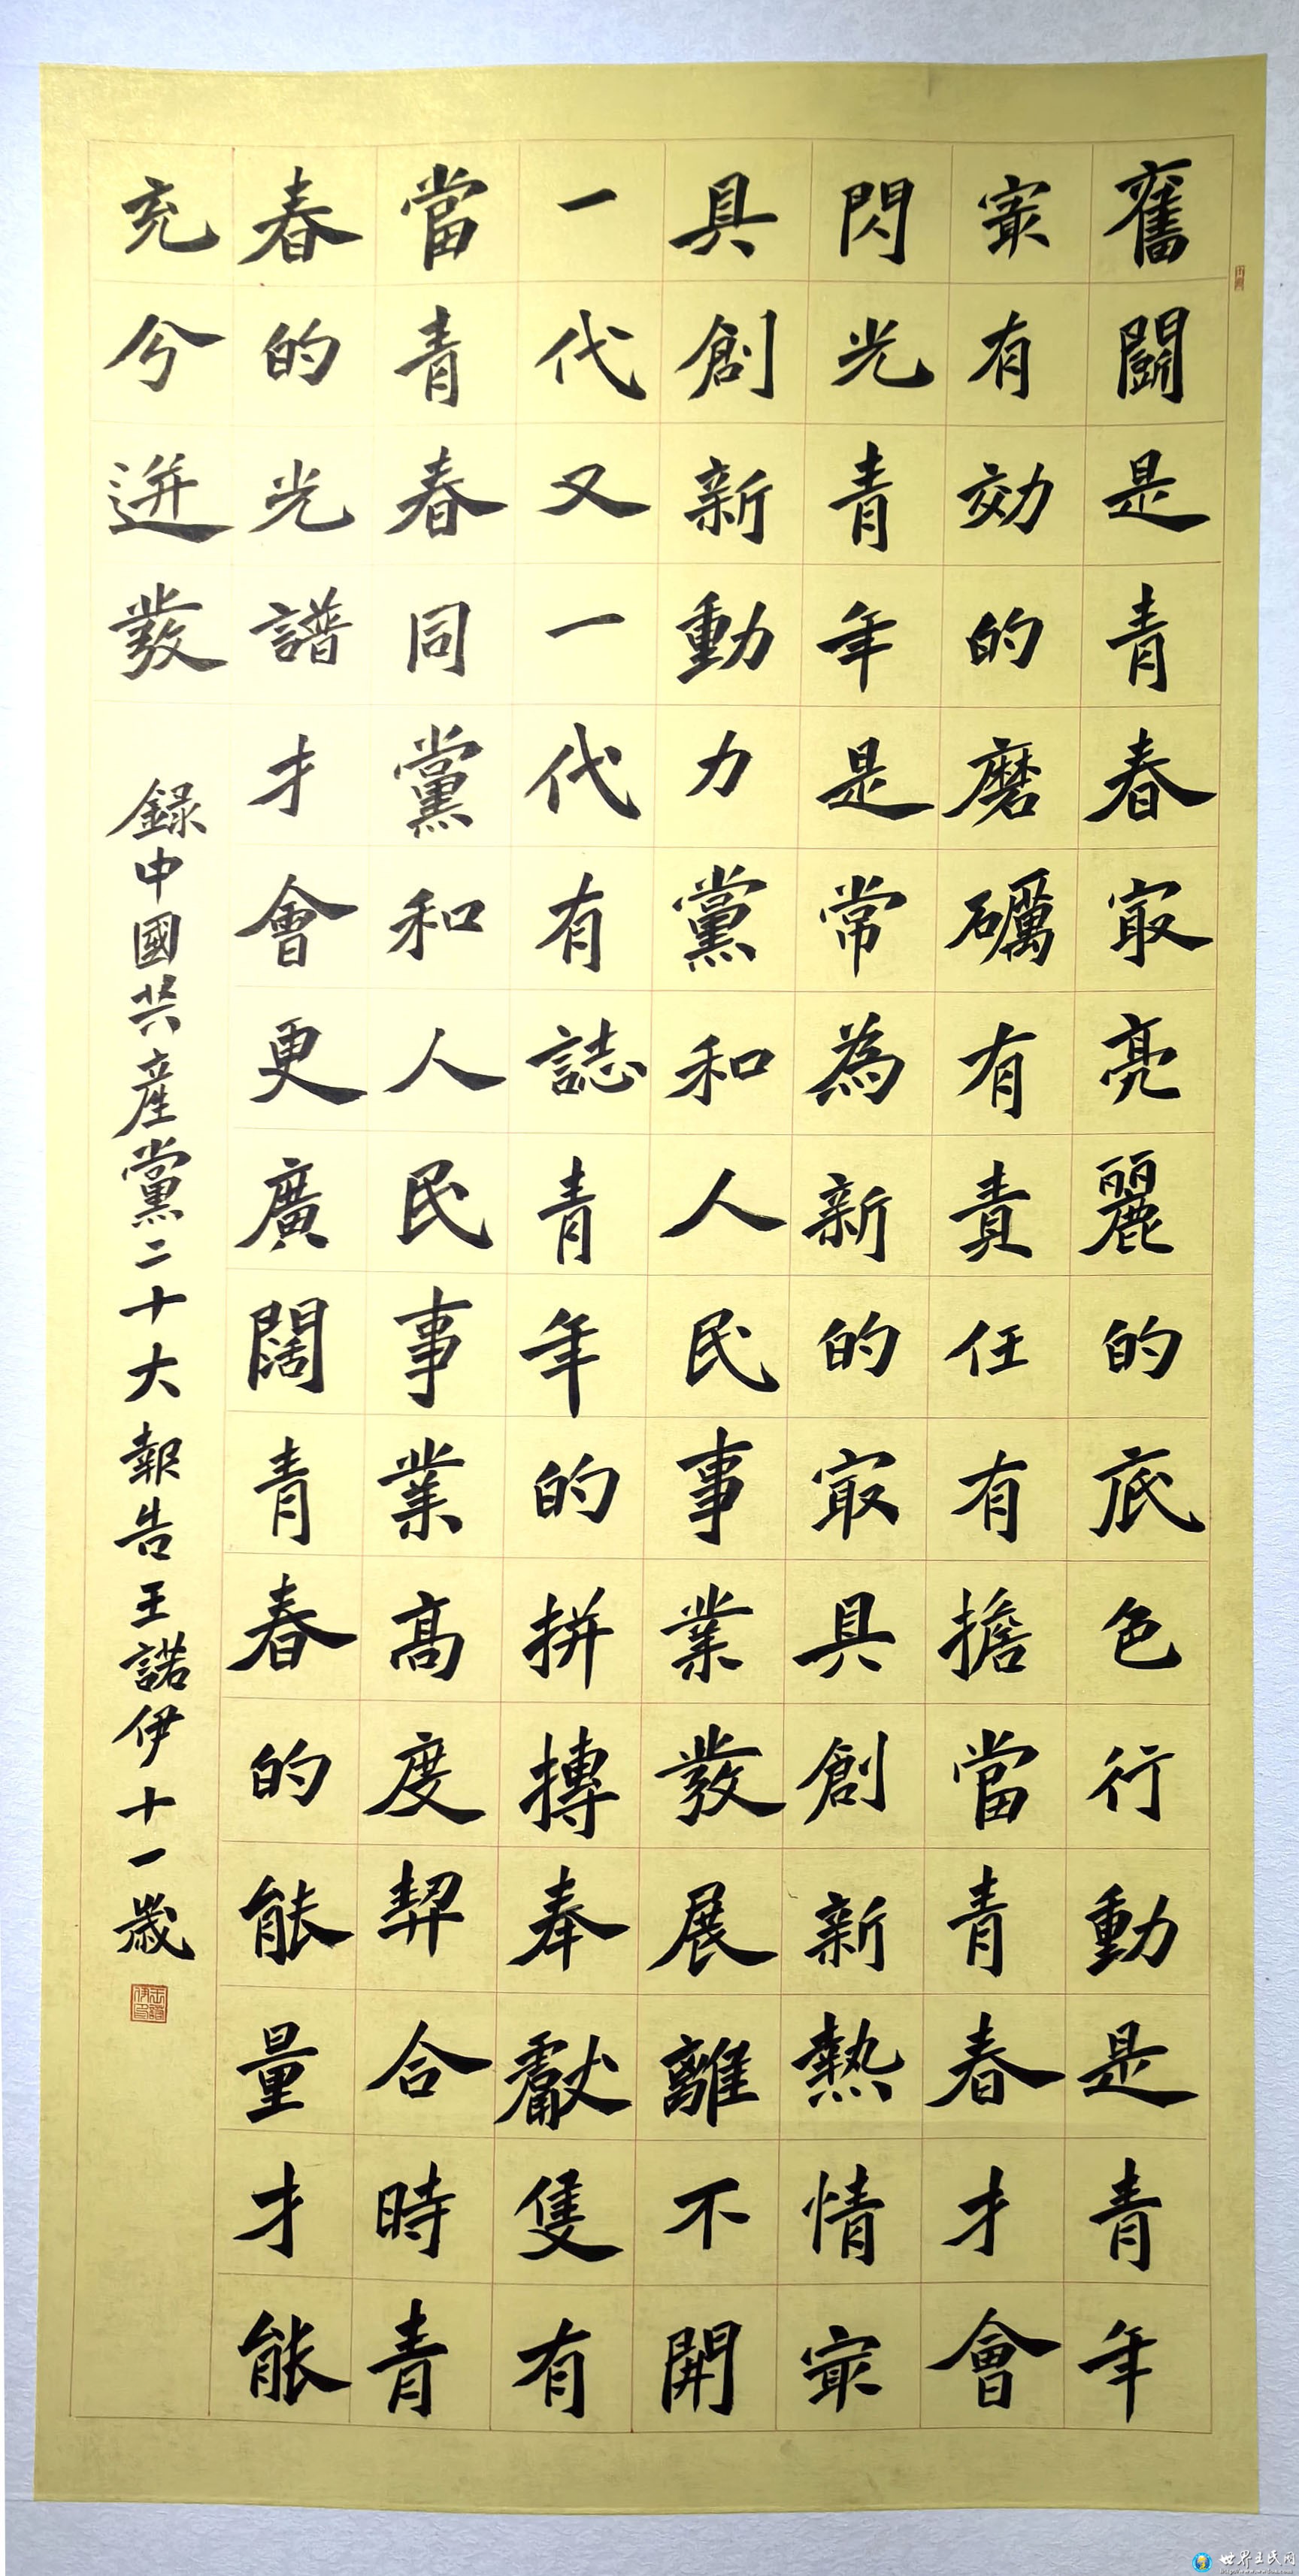 奮鬭是青春冣亮麗的底色行動是青年
冣有効的磨礪有責任有擔當青春才會
閃光青年是常為新的冣具創新熱情冣
具創新動力黨和人民事業發展離不開
一代又一代有誌青年的拼搏奉獻隻有
當青春同黨和人民事業高度契合時青
春的光譜才會更廣闊青春的能量才能
充分迸發
錄中國共產黨二十大報告王諾伊十一歲
世界王氏网